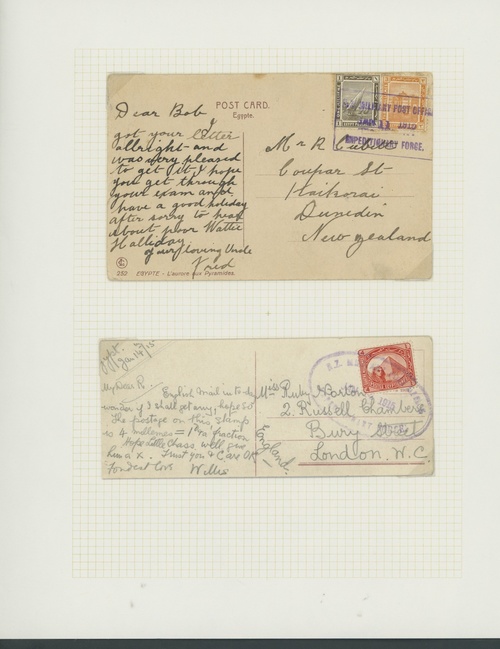 POST CARD.
Egypte.
Dear Bob
I
got your letter
allright and
was very pleased
to get it, I hope
you get through
your exam and
have a good holiday
after sorry to hear
about poor Wattie
Halliday.
your loving Uncle
Fred
Mr R
Coupar St
Kaikorai
Dunedin
New Zealand
MILITARY POST OFFICE
JAN 11
EXPEDITIONARY FORCE.
252 EGYPTE - L'aurore aux Pyramides.
Jan 14/15
My Dear
English mail in to day
wonder if I shall get any; hope so!
The postage on this stamp
is 4 milliemes = 1d
fraction
Hope little Chass well give
him a x. Trust you & C are OK
Fondest love Willie
England
Miss Ruby
2. Russell Chambers
Bury Street
London, W.C.
N.Z.